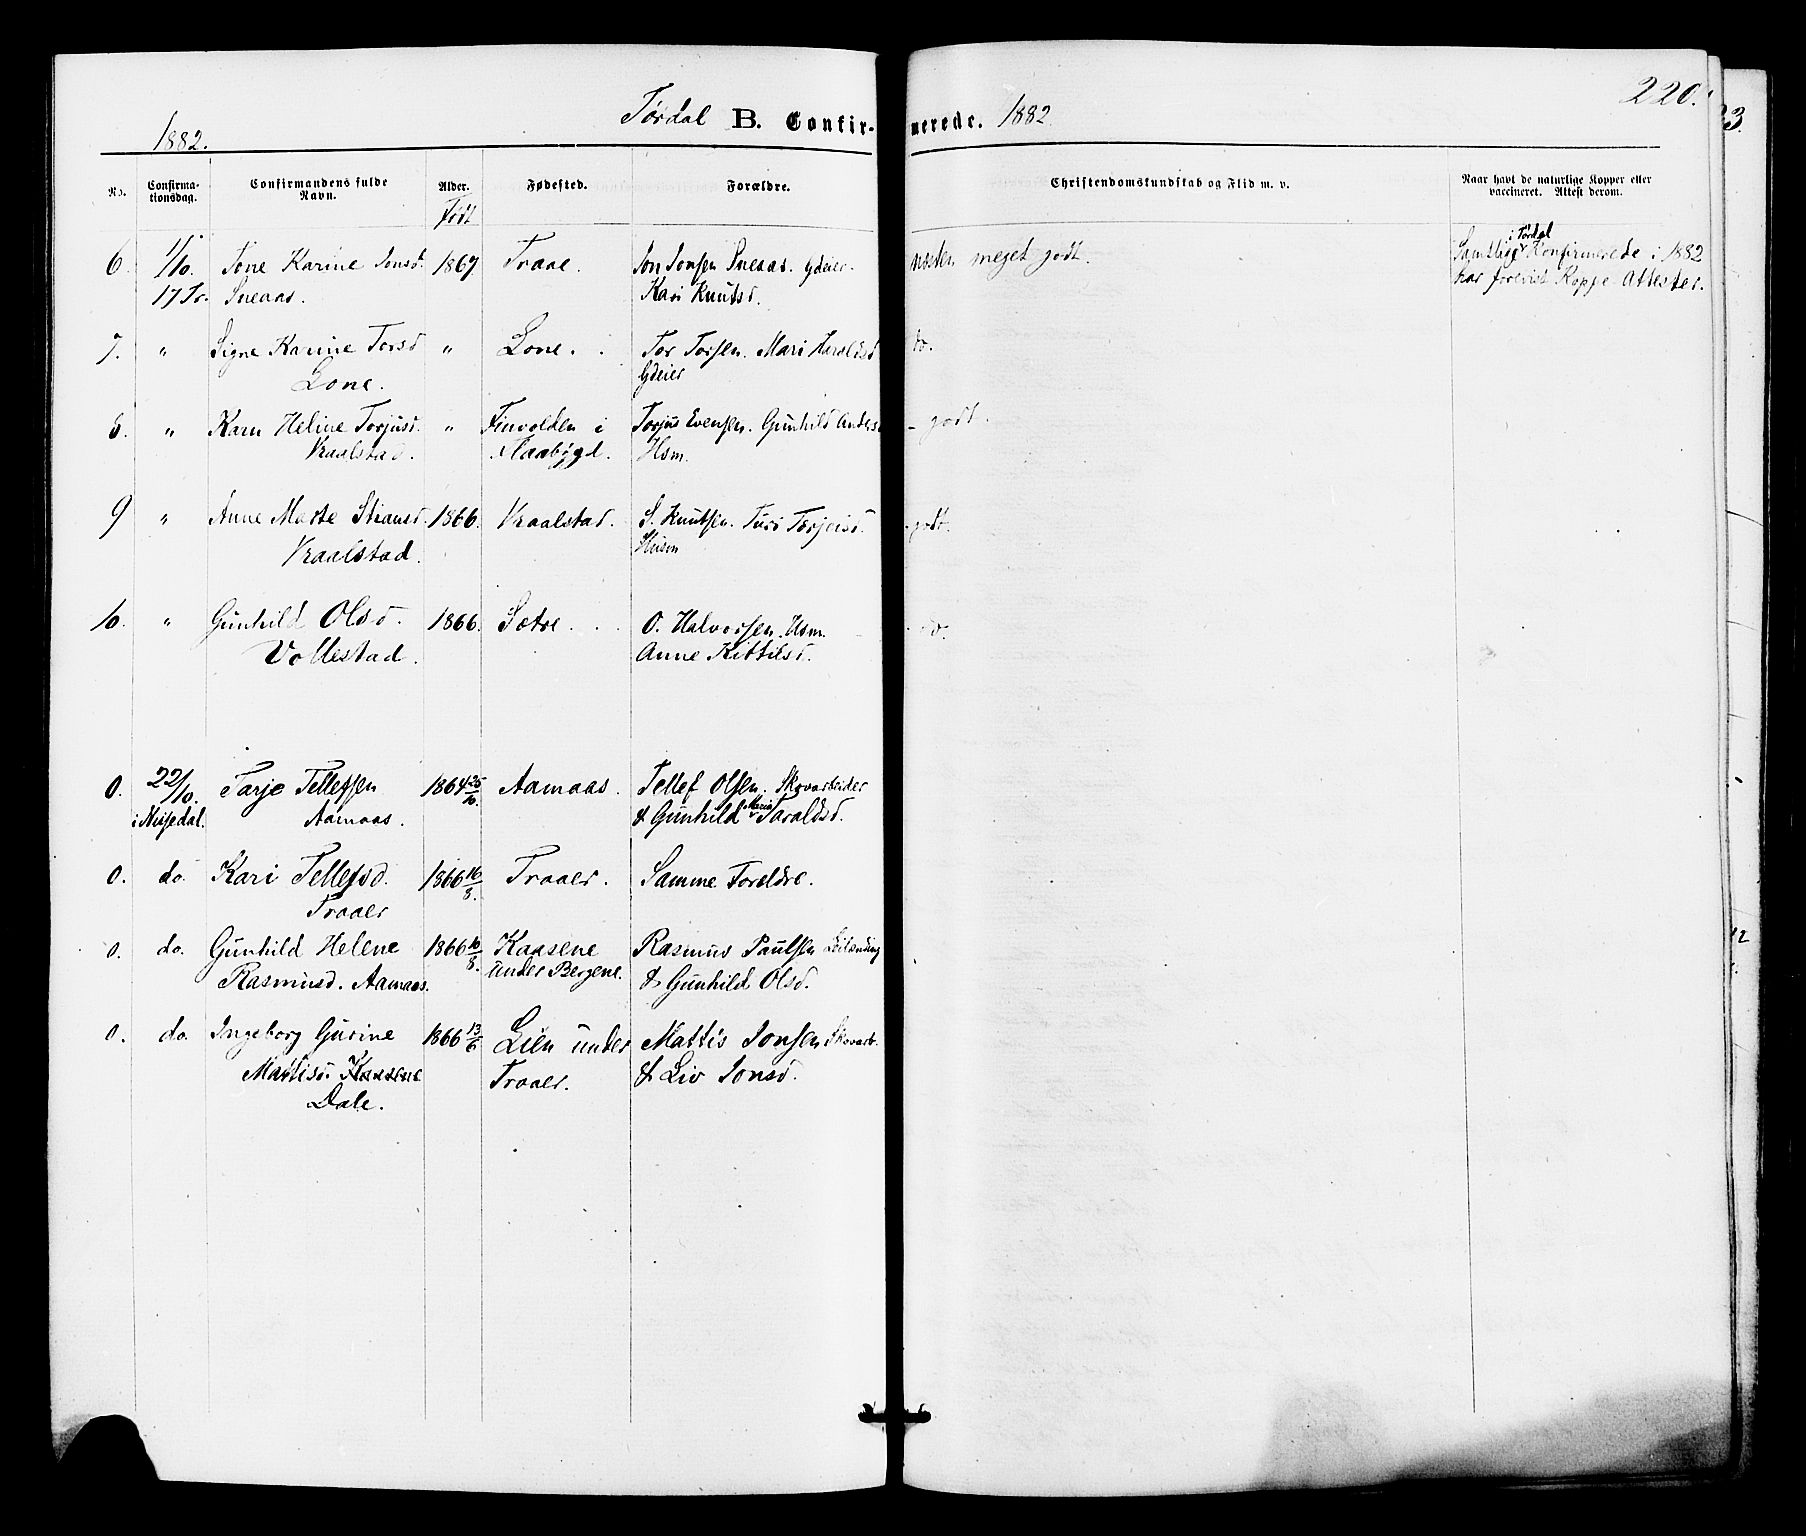 Tørdal B. Confirmerede. 1882
220.
1882.
No. Confirmationsdag. Confirmandens fulde Navn. Alder. Født Fødested. Forældre. Christendomskundskab og Flid m. v. Naar havt de naturlige Kopper eller vaccineret. Attest derom.
6. 1/10. Tone Karine Jonsd. 1867 Traae. Jon Jonsen Sneaas. Gdeier. næsten meget godt. Samtlige i Tørdal Konfirmerede i 1882
17 Tr. Sneaas. Kari Knutsd. har forevist Koppe-Attester.
7. " Signe Karine Torsd " Lone. Tor Torsen. Mari Haraldsd do.
Lone. Gdeier
8. " Karn Heline Torjusd. " i Torjus Evensen. Gunhild Anders - godt.
Kraalstad. Hsm.
9 " Anne Marte 1866. Kraalstad. S. Knutsen. Turi Torjeisd. - godt.
Kraalstad. Husm
10. " Gunhild Olsd. 1866. Sætre. O. Halvorsen. Hsm. - do.
Vollestad. Anne Kittilsd.
0. 22/10. Tarje Tellefsen 1864 25/10 Aamaas. Tellef Olsen. Skovarbeider
i Nissedal. Aamaas. & Gunhild Maria Taraldsd.
0. do. Kari Tellefsd. 1866 16/8. Traaer. Samme Foreldre.
Traaer
0. do. Gunhild Helene 1866 10/8. Kaasene Rasmus Paulsen Leilænding
Rasmusd. Aamaas. under Bergene. & Gunhild Olsd.
0. do. Ingeborg Gurine 1866 13/6 Lien under Mattis Jonsen Skovarb.
Mattisd. Kaasene Traaer. & Liv Jonsd.
Dale.